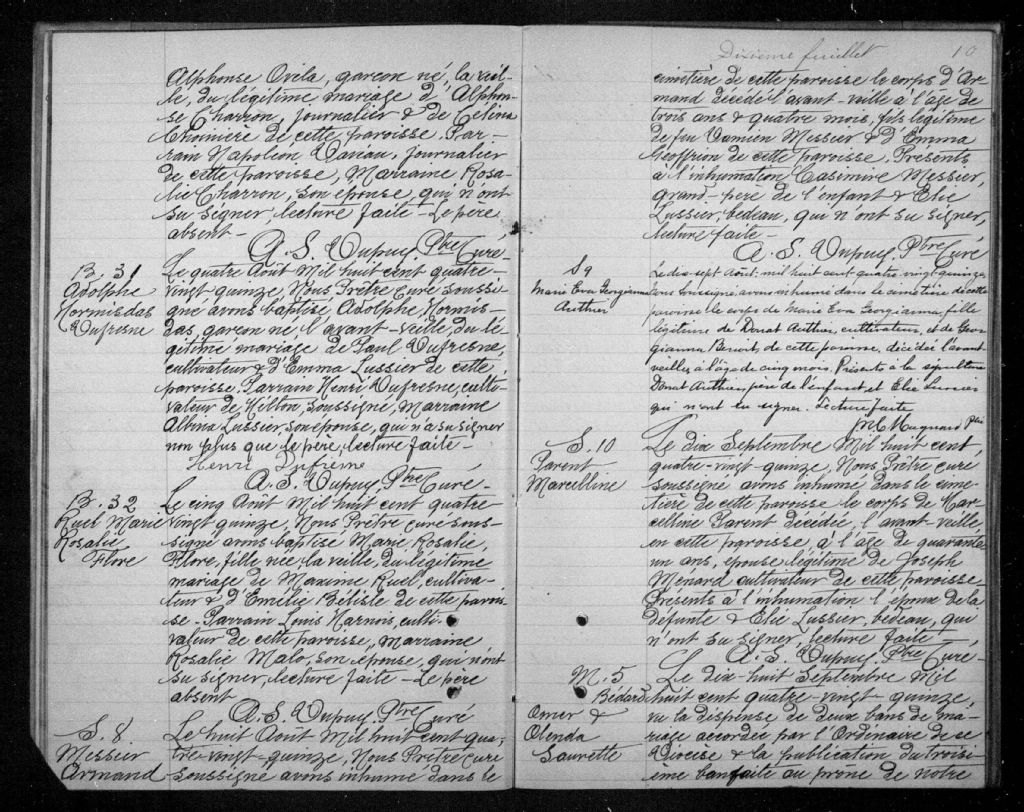 Alphonse Ovila, garçon né, la veil-
le, du légitime mariage d'Alphon-
se Charron, journalier & de Celina
Choinière de cette paroisse. Par-
rain Napoleon Daviau, journalier
de cette paroisse, Marraine Rosa-
lie Charron, son epouse, qui n'ont
su signer, lecture faite - Le père
absent -
A. S. Dupuy, Ptre Curé
B. 31
Adolphe
Hormisdas
Dufresne
Le quatre Août Mil huit cent quatre-
vingt quinze, Nous Prêtre Curé soussi-
gné avons baptisé Adolphe, Hormis-
das, garçon né l'avant-veille, du lé-
gitime mariage de Paul Dufresne,
cultivateur & d'Emma Lussier de cette
paroisse. Parrain Henri Dufresne, culti-
vateur de Milton, soussigné, Marraine
Albina Lussier, son épouse, qui n'a su signer
non plus que le père, lecture faite -
Henri Dufresne
A. S. Dupuy, Ptre Curé -
B. 32
Ruel Marie
Rosalie
Flore
Le cinq Août Mil huit cent quatre
vingt quinze, Nous Prêtre curé sous-
signé avons baptisé Marie, Rosalie,
Flore, fille née la veille, du légitime
mariage de Maxime Ruel, cultiva-
teur & d'Emélie Bélisle de cette parois-
se - Parrain Louis Harnois, culti-
valeur de cette paroisse, Marraine
Rosalie Malo, son épouse, qui n'ont
su signer, lecture faite - Le père
absent
A. S. Dupuy, Ptre Curé
S. 8
Messier
Armand
Le huit Août Mil huit cent qua-
tre-vingt-quinze, Nous Prêtre curé
soussigné avons inhumé dans le
Dixieme feuillet 10
cimetière de cette paroisse le corps d'Ar-
mand décédé l'avant-veille à l'âge de
trois ans & quatre mois, fils légitime
de feu Damien Messier & d'Emma
Geoffrion de cette paroisse, Présents
à l'inhumation Casimire Messier,
grand-père de l'enfant & Elie
Lussier, bedeau, qui n'ont su signer,
lecture faite -
A. S. Dupuy, Ptre Curé
S 9
Marie Eva Georgianna
Authier
Le dix-sept Août, mil huit cent quatre vingt quinze,
nous soussigné avons inhumé dans le cimetière de cette
paroisse le corps de Marie Eva Georgianna, fille
légitime de Donat Authier, cultivateur, et de Geor-
gianna Benoit, de cette paroisse, décédée l'avant-
veille, à l'âge de cinq mois. Présents à la sépulture
Donat Authier, père de l'enfant et Elie Lussier
qui n'ont su signer. Lecture faite
Ptre
S. 10
Parent
Marcelline
Le dix Septembre Mil huit cent
quatre-vingt-quinze, Nous Prêtre curé
soussigné avons inhumé dans le cime-
tière de cette paroisse le corps de Mar-
celline Parent décédée, l'avant-veille,
en cette paroisse, à l'âge de quarante
un ans, épouse légitime de Joseph
Menard cultivateur de cette paroisse
Présents à l'inhumation l'époux de la
défunte & Elie Lussier, bédeau, qui
n'ont su signer, lecture faite -
A. S. Dupuy, Ptre Curé -
M. 5
Bédard
Omer &
Olenda
Saurette
Le dix-huit Septembre Mil
huit cent quatre-vingt-quinze,
vu la dispense de deux bans de ma-
riage accordée par l'Ordinaire de ce
Diocèse & la publication du troisi-
ème ban faite au prône de notre